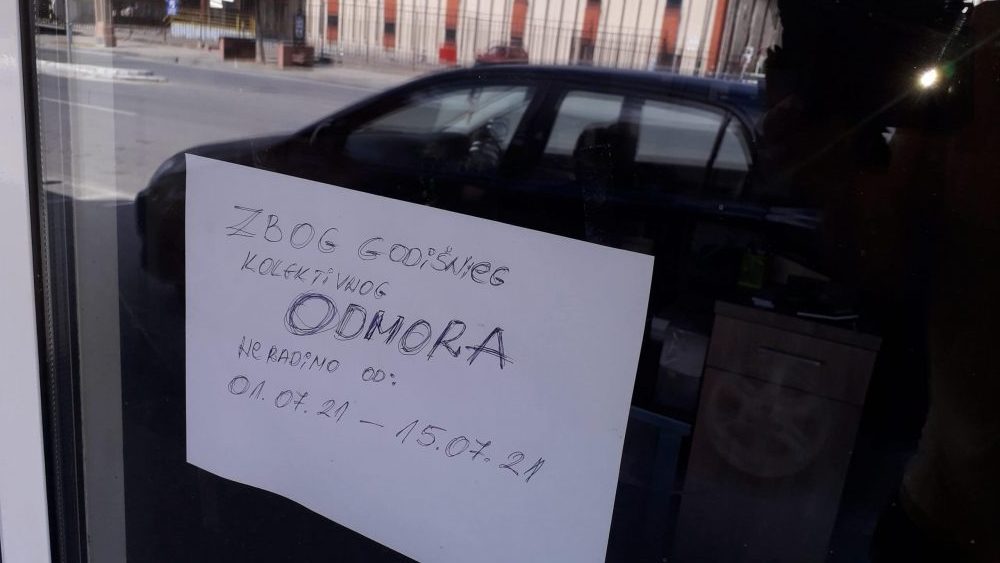 ZBOG GODIŠNJEG
KOLEKTIVNOG
ODMORA
NE RADIMO OD:
01.07.21 – 15.07.21